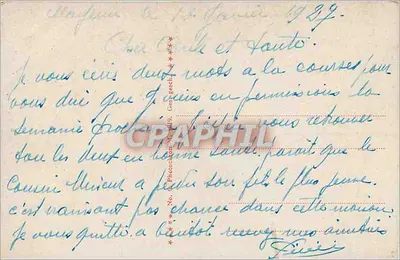 le 12 Janvier 1927.
Cher Oncle et Tante.
Je vous écris deux mots a la courses pour
vous dire que Je viens en permissions la
semaine vous retrouver
tous les deux en bonne santé. parait que le
Cousin a perdu son fils le plus jeune.
c'est vraisant pas chance dans cette maison.
Je vous quitte a bientôt recevez mes amitiés
CPAPHTL